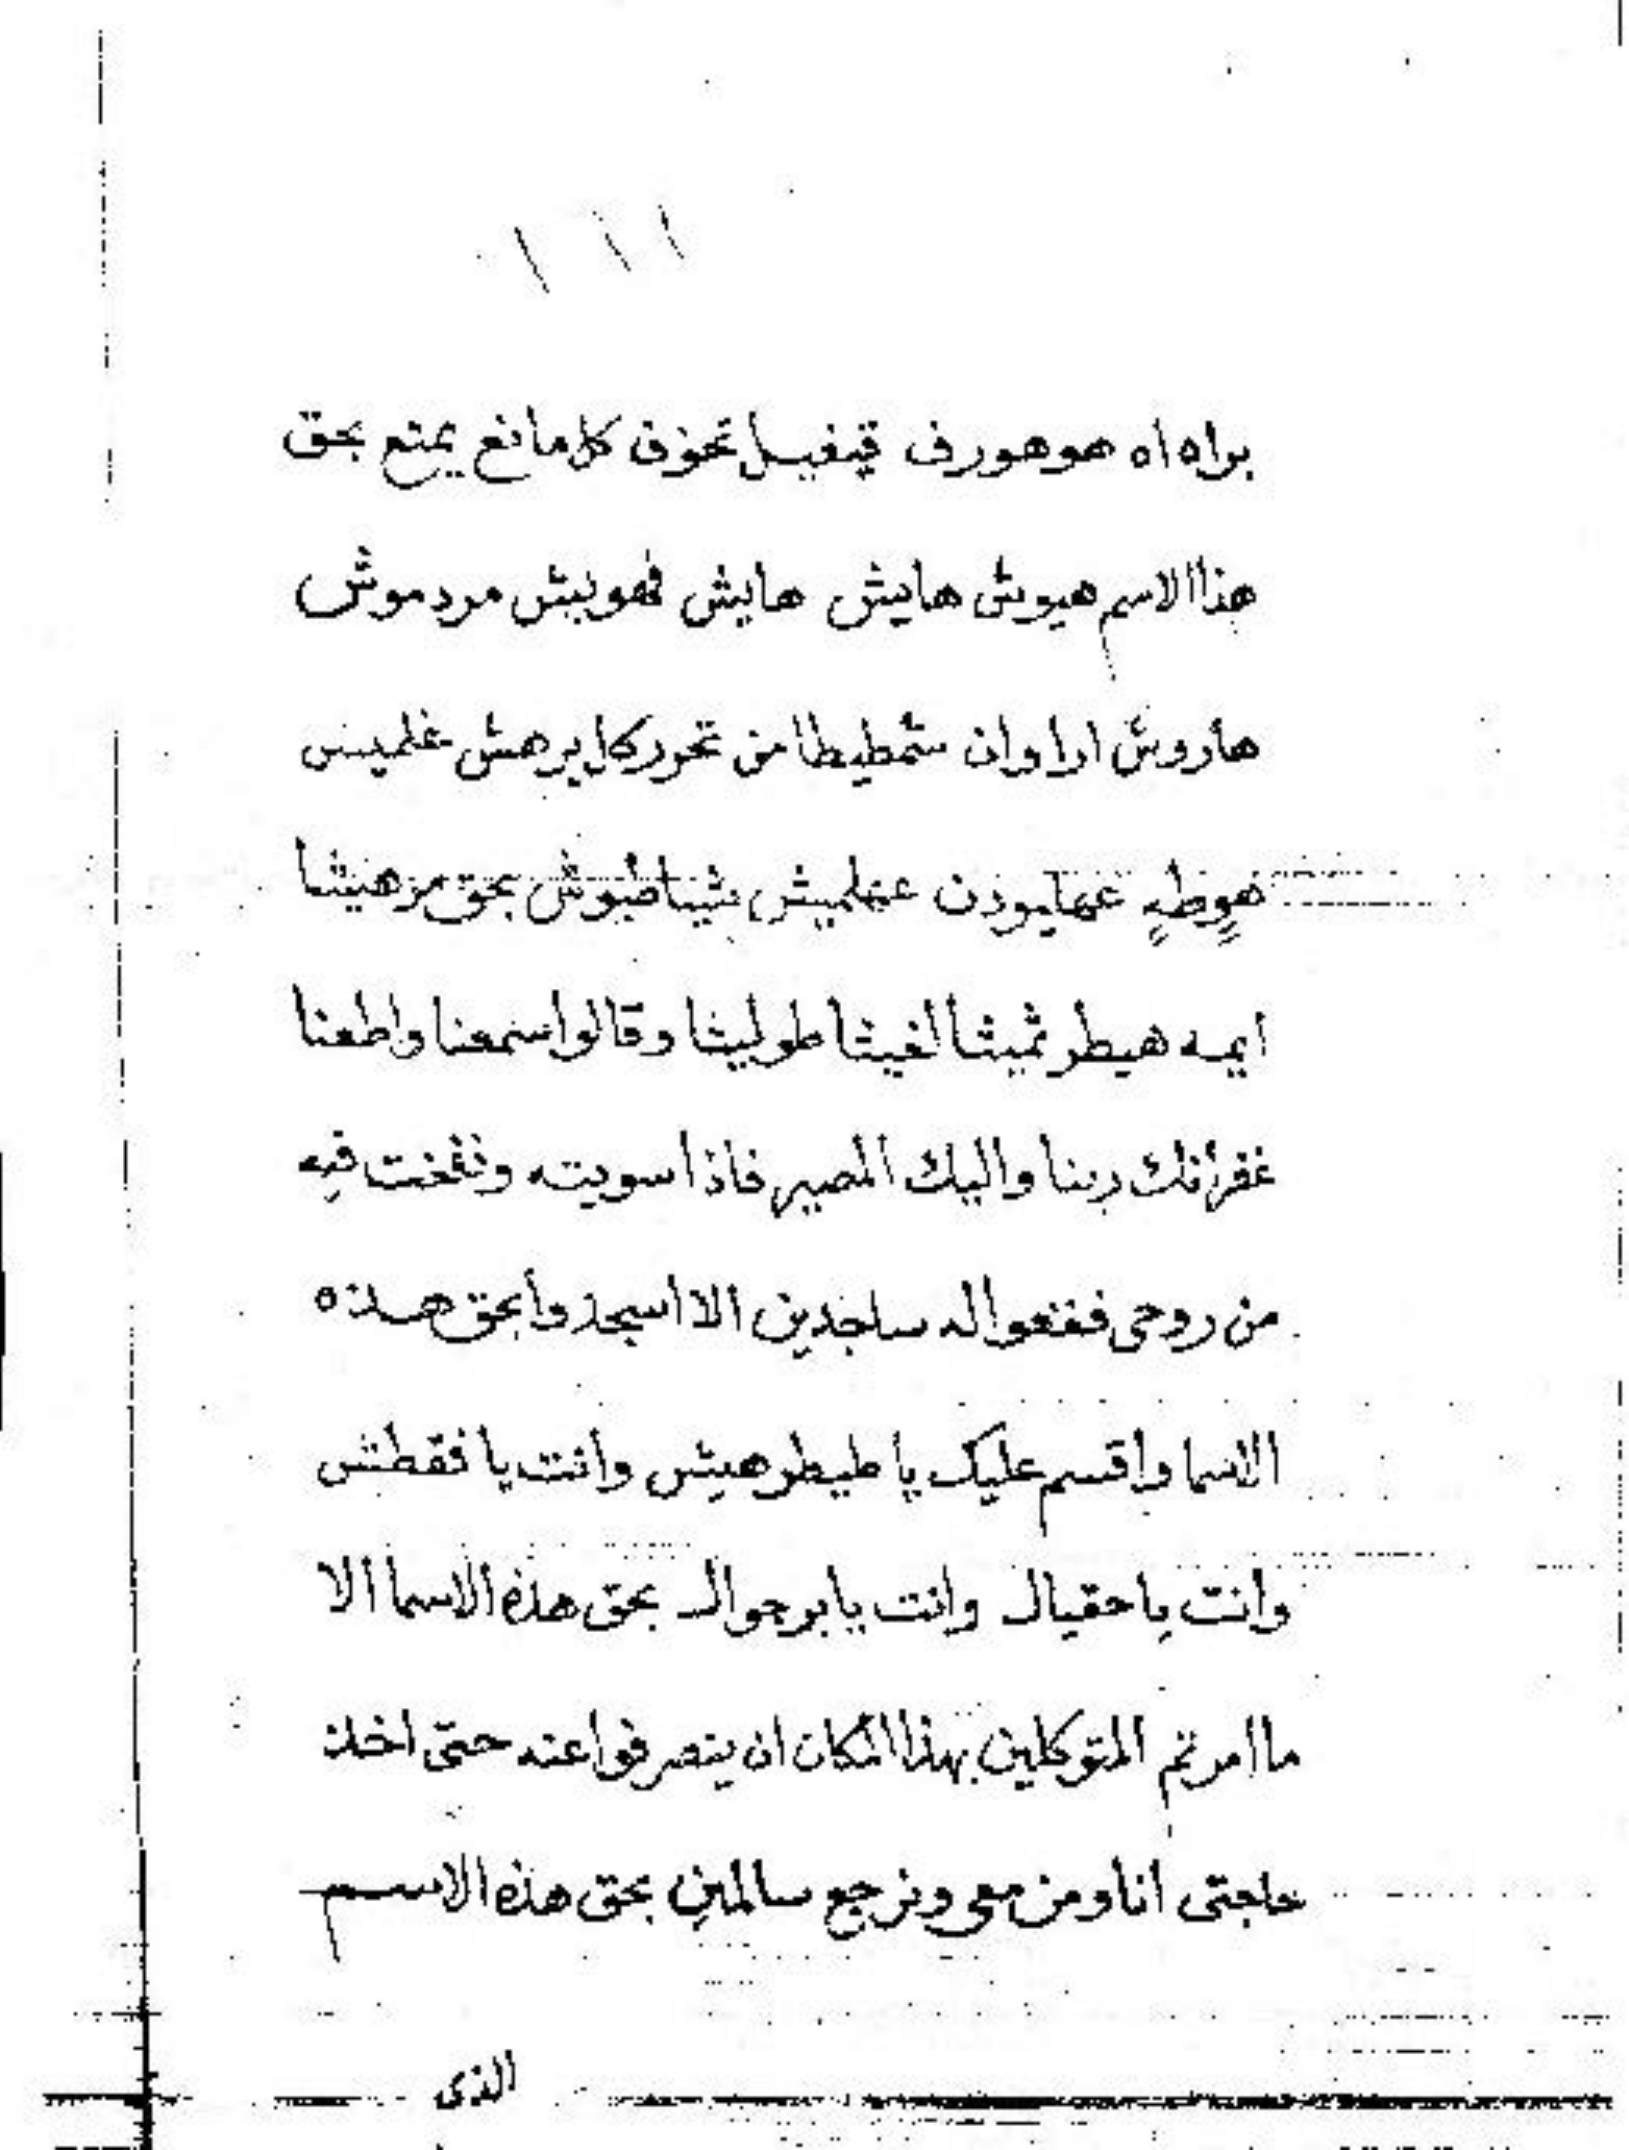 براه اه هوهورف قيغيل تحزف كل مانع يمنع بحق
هذا الاسم هيوش هايش هايش فهوبيش مردموش
هاروش اراوان شمطيطا من تحرر كل برهش غلميس
هوطه عهليودن عهلميش شيا طيوش بحق مرهيشا
ايمه هيطر ثميثا الغيثا طوليثا وقالوا سمعنا واطعنا
غفرانك ربنا واليك المصير فاذا سويته ونفخت فيه
من روحى فقعوا له ساجدين الا اسجدوا بحق هذه
الاسما واقسم عليك يا طيطرهيش وانت يا فقطش
وانت يا حقيال وانت يا برجوال بحق هذه الاسما الا
ما امرتم المتوكلين بهذا المكان ان ينصرفوا عنه حتى اخذ
حاجتى انا ومن معى ونرجع سالمين بحق هذه الاسم
الذى